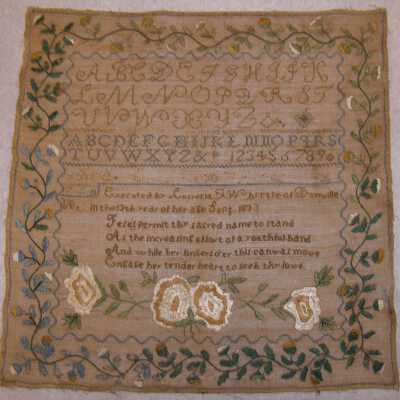 A B C D E F G H I J K
L M N O P Q R S T
U V W X Y Z &
A B C D E F G H I J K L M N O P Q R S
T U V W X Y Z & 1 2 3 4 5 6 7 8 9
Executed by W of Danville
in the year of her age Sept.
Jesus permit thy sacred name to stand
As the increasing effort of a youthful hand
And while her fingers o'er this canvas move
Engage her tender heart to seek thy love